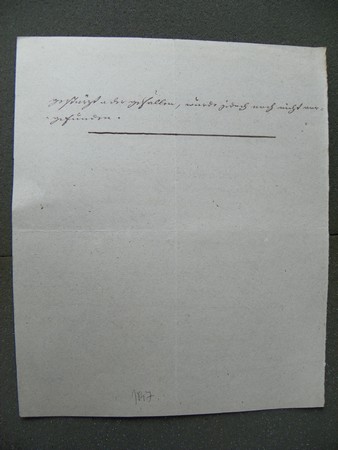 gestürzt oder gefallen, wurde jedoch noch nicht vor-
gefunden.
1867